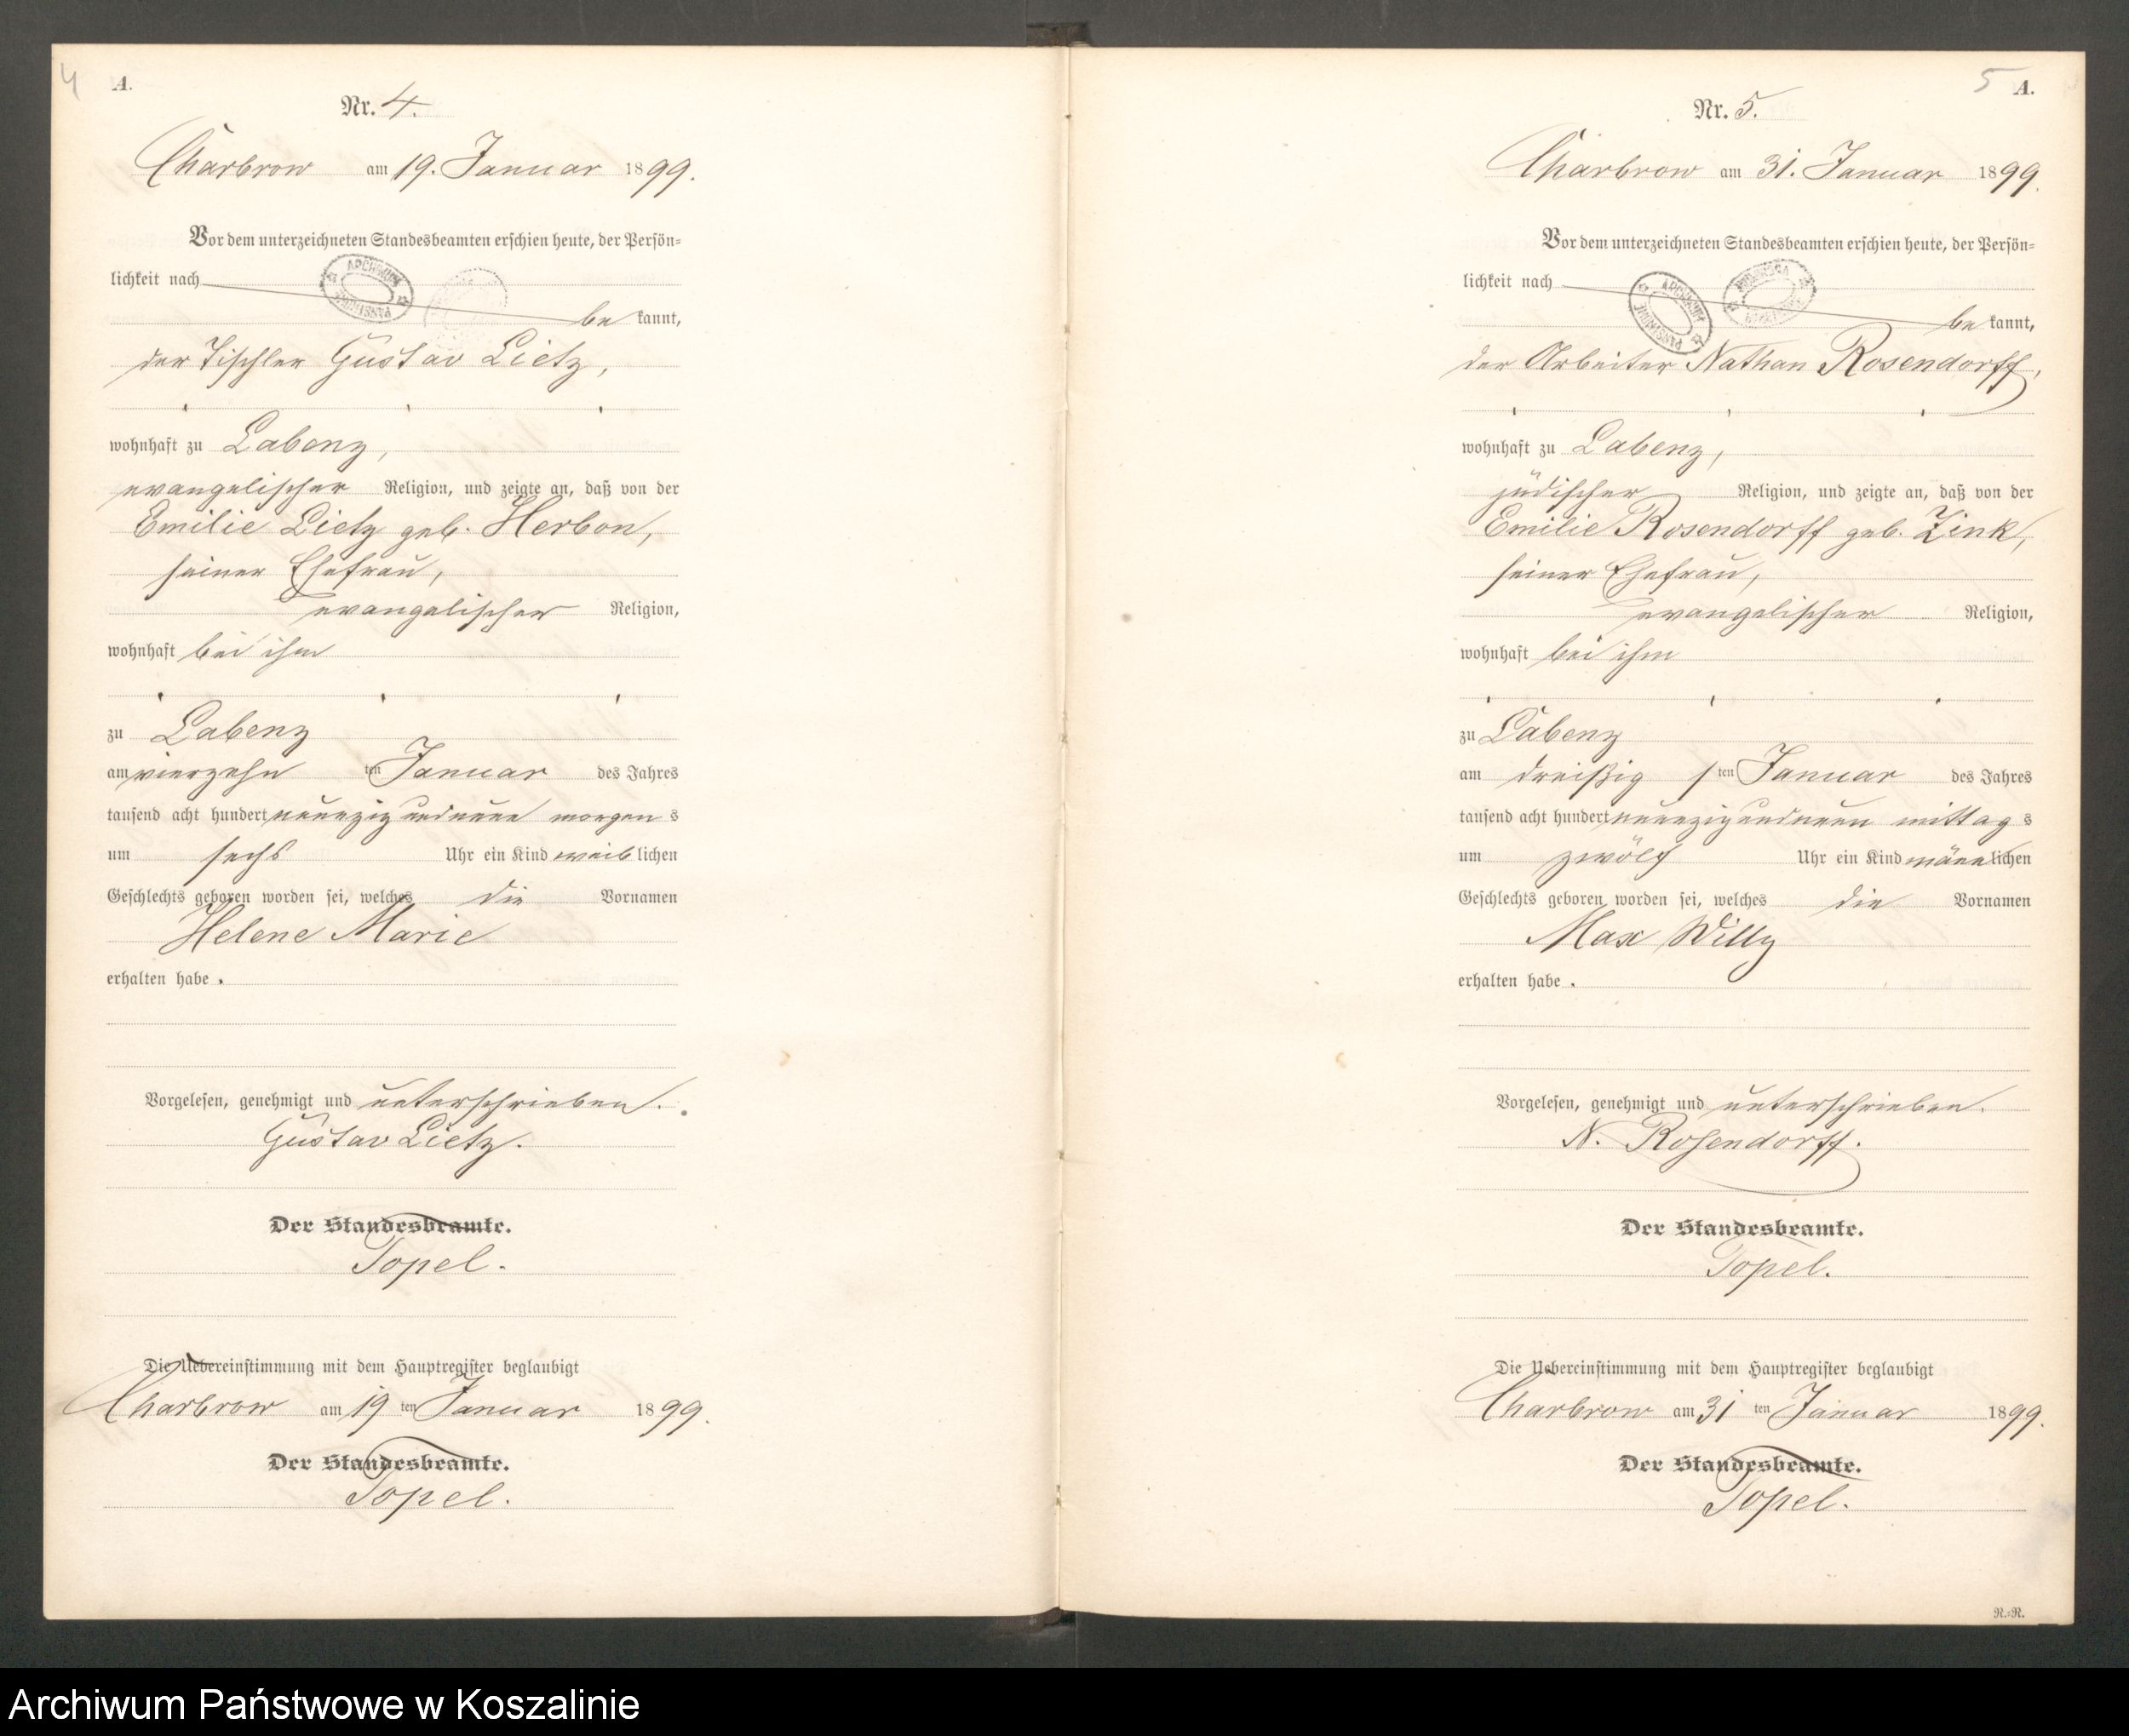 4
A.
Nr. 4.
Charbrow am 19. Januar 1899.
Vor dem unterzeichneten Standesbeamten erschien heute, der Persön-
lichkeit nach
be kannt,
der Tischler Gustav Lietz,
wohnhaft zu Labenz,
evangelischer Religion, und zeigte an, daß von der
Emilie Lietz geb. Herbon,
seiner Ehefrau,
evangelischer Religion,
wohnhaft bei ihm
zu Labenz
am vierzehn ten Januar des Jahres
tausend acht hundert neunzig und neun morgen s
um sechs Uhr ein Kind weib lichen
Geschlechts geboren worden sei, welches die Vornamen
Helene Marie
erhalten habe.
Vorgelesen, genehmigt und unterschrieben.
Gustav Lietz.
Der Standesbeamte.
Topel.
Die Uebereinstimmung mit dem Hauptregister beglaubigt
Charbrow am 19 ten Januar 1899.
Der Standesbeamte.
Topel.
5
A.
Nr. 5.
Charbrow am 31. Januar 1899.
Vor dem unterzeichneten Standesbeamten erschien heute, der Persön-
lichkeit nach
ARCHIWUM PAŃSTWOWE
be kannt,
der Arbeiter Nathan Rosendorff,
wohnhaft zu Labenz,
jüdischer Religion, und zeigte an, daß von der
Emilie Rosendorff geb. Zink,
seiner Ehefrau,
evangelischer Religion,
wohnhaft bei ihm
zu Labenz
am dreißig s ten Januar des Jahres
tausend acht hundert neunzig und neun mittag s
um zwölf Uhr ein Kind männ lichen
Geschlechts geboren worden sei, welches die Vornamen
Max Willy
erhalten habe.
Vorgelesen, genehmigt und unterschrieben.
N. Rosendorff.
Der Standesbeamte.
Topel.
Die Uebereinstimmung mit dem Hauptregister beglaubigt
Charbrow am 31 ten Januar 1899.
Der Standesbeamte.
Topel.
R.-R.
Archiwum Państwowe w Koszalinie